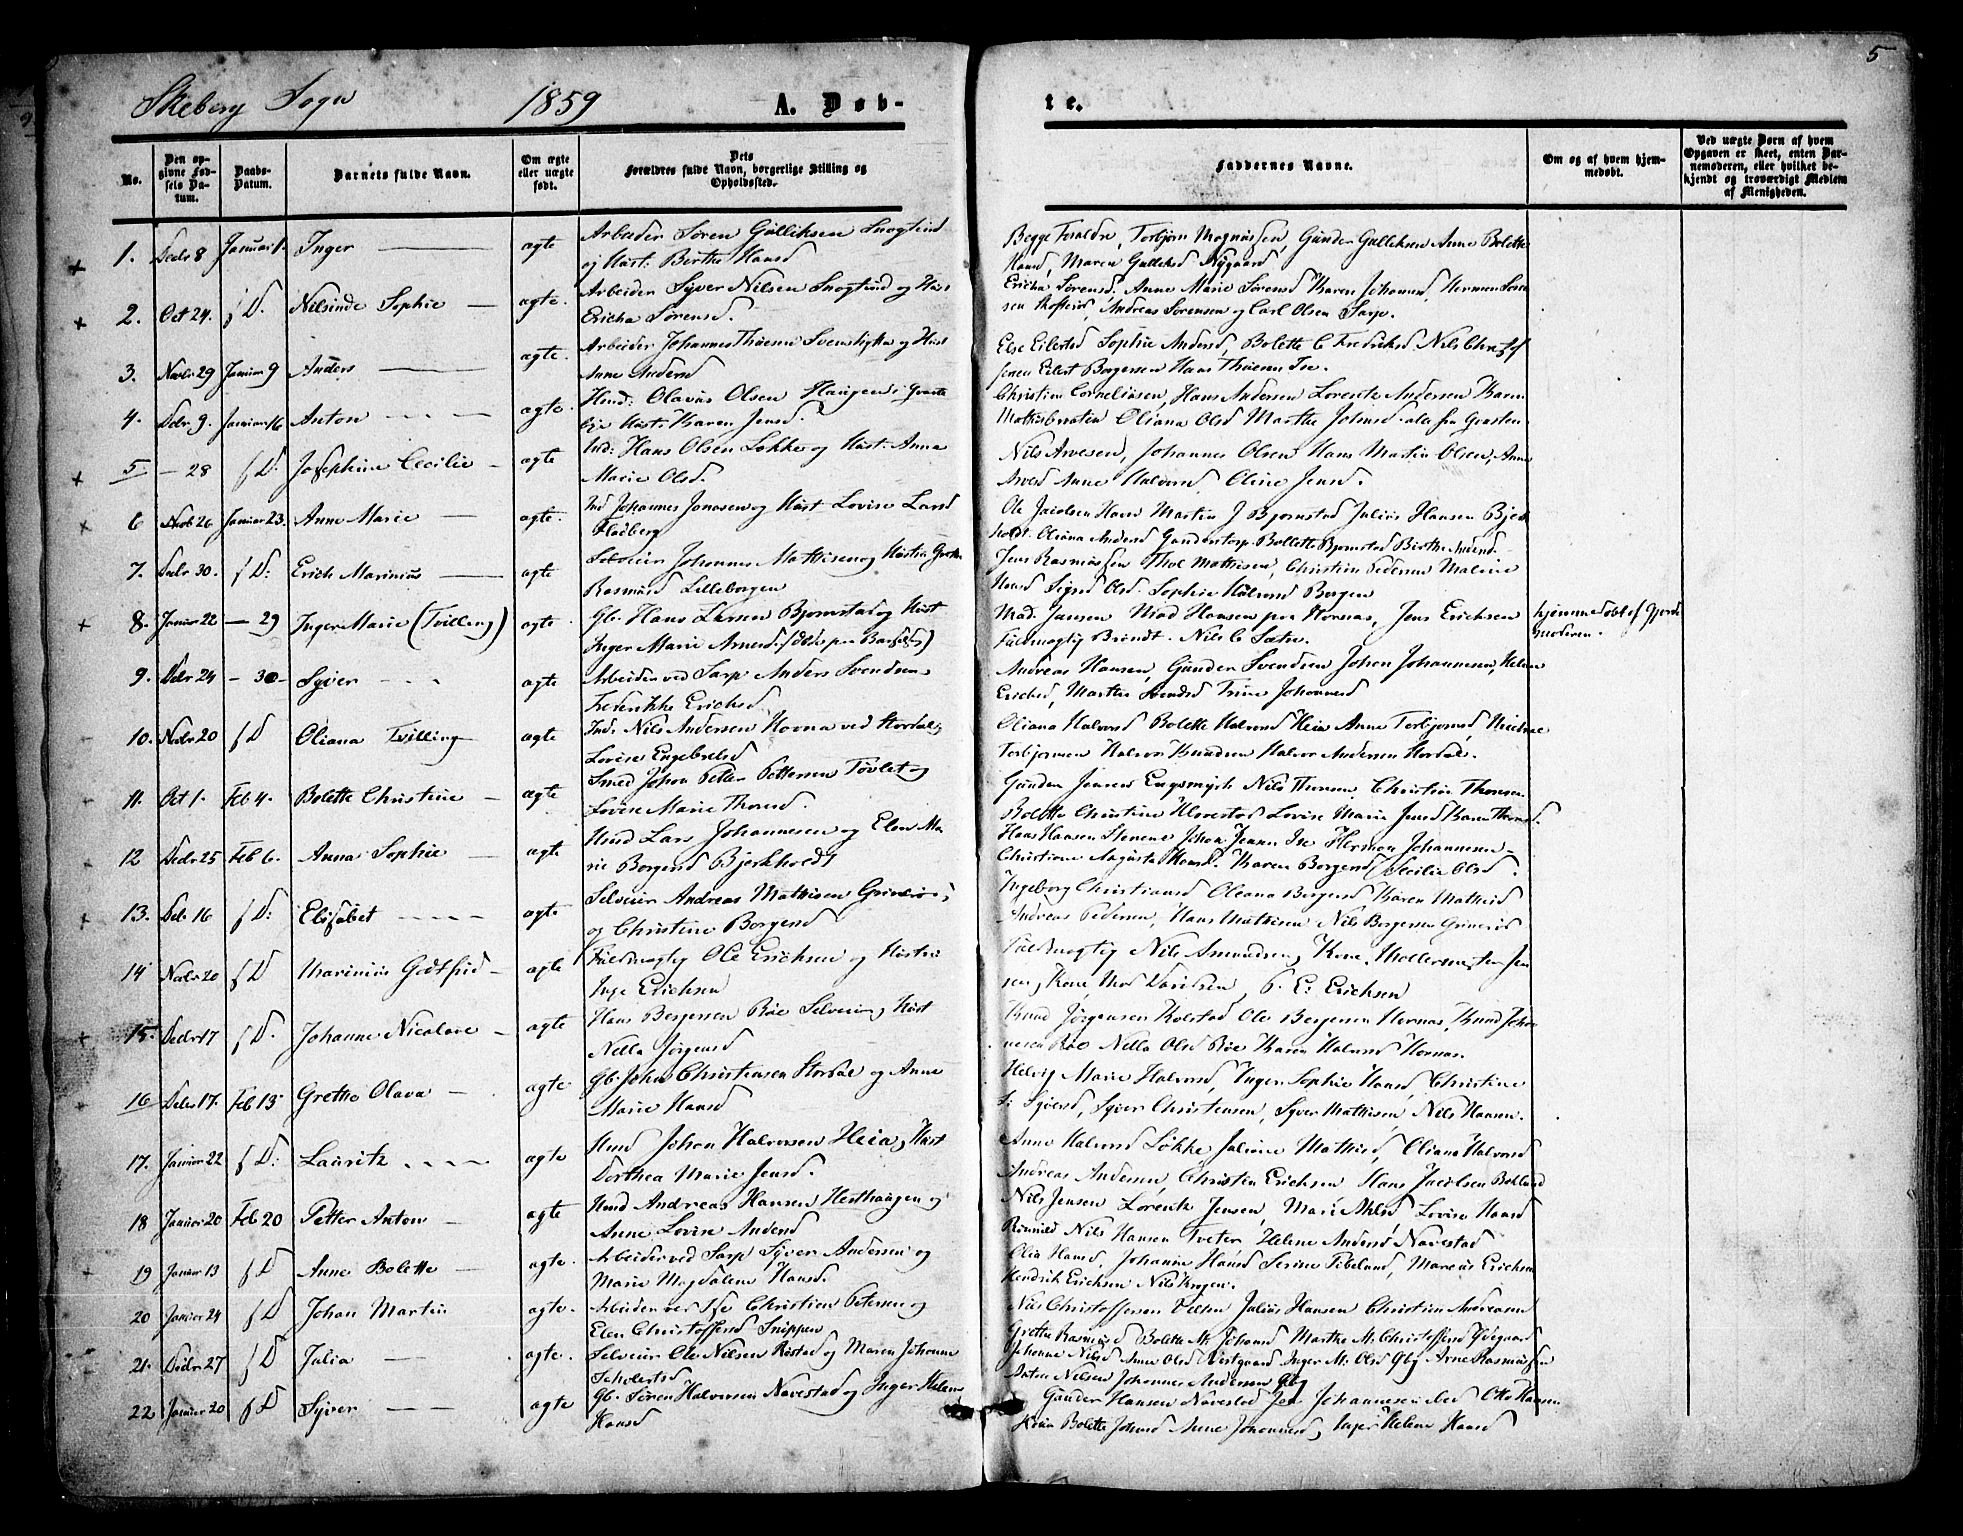 5
Skeberg Sogn 1859 A. Døb-
te.
No.
Den op-
givne Fød-
sels Da-
tum.
Daabs-
Datum.
Barnets fulde Navn.
Om ægte
eller uægte
født.
Dets
Forældres fulde Navn, borgerlige Stilling og
Opholdssted.
Faddernes Navne.
Om og af hvem hjem-
medøbt.
Ved uægte Børn af hvem
Opgaven er skeet, enten Bar-
nemoderen, eller hvilket be-
kjendt og troværdigt Medlem
af Menigheden.
1. Decbr 8 Januar 1. Inger ægte Arbeider Søren Gulliksen
og Hust: Berthe Hansd
Begge Forældre, Torbjørn Magnussen, Gunder Gulliksen Anne Bolette
Hansd, Maren Gulliksd Nygaard
2. Oct 24. f D. Nilsinde Sophie ægte. Arbeider Syver Nilsen og Hust
Ericka Sørensd.
Ericka Sørensd. Anne Marie Sørensd Karen Johannsd, Herman Søren
sen Andreas Sørensen og Carl Olsen Sarp.
3. Novbr 29 Januar 9 Anders ægte. Arbeider Johannes Thuesen og Hust
Anne Andersd
Else Eilertsd Sophie Andersd, Bolette C Fredriksd. Nils Christof
fersen Eilert Borgersen Hans Thuesen Ise.
4. Decbr 9. Januar 16 Anton ægte. Husmd: Olavus Olsen Haugen i
Hust: Karen Jensd.
Christian Corneliusen, Hans Andersen Lorentz Andersen Karen
Oliana Olsd Marthe Johnsd alle fra
5 — 28 f D: Josephine Cecilie ægte Ind: Hans Olsen Løkke og Hust. Anne
Marie Olsd.
Nils Arvesen, Johannes Olsen Hans Martin Olsen, Anne
Arvesd Anne Halvorsd Oline Jensd.
6 Novb 26 Januar 23. Anne Marie ægte. Ind Johannes Jonasen og Hust Lovise Larsd
Fladberg
Ole Jacobsen Hansd Martin J Bjørnstad Julius Hansen Bjerk
holdt. Oliana Andersd Gundestorp. Bollette Bjørnstad Birthe Andersd.
7. Decbr 30. f D: Erich Marinius ægte Selveier Johannes Mathisen og Hustru Grethe
Rasmusd Lilleborgen
Jens Rasmussen Thol Mathisen, Christian Pedersen Maline
Hansd Sigrd Olsd. Sophie Halvorsd Borgen
8. Januar 22 — 29 Inger Marie (Tvilling) ægte Gb. Hans Larsen Bjørnstad og Hust
Inger Marie Arnesd.
Mad. Jansen Mad Hansen paa Hornæs, Jens Erichsen
Fuldmægtig Brandt. Nils C. Sætre.
hjemmedøbt af Jorde
moderen.
9. Decbr 24 — 30 — Syver ægte Arbeider ved Sarp Anders Svendsen
Frederikke Erichsd
Andreas Hansen, Gunder Svendsen Johan Johannesen, Helene
Erichsd, Marthe Svendsd Trine Johannesd
10. Novbr 20 f D Oliana Tvilling ægte Ind. Nils Andersen Hovna ved Stordal
Lovise Engebretsd
Oliana Halvorsd Bolette Halvorsd Heia Anne Torbjørnsd, Michael
Torbjørnsen Halvor Knudsen Halvor Andersen Stordal.
11. Oct 1. Feb 4. Bolette Christine ægte Smed Johan Petter Pettersen Tovlet og
Lovise Marie Thoresd.
Gunder Jensen Engsmyr Nils Thoresen Christian Thoresen
Bolette Christine Ulvestad Lovise Marie Jensd Karen Thoresd.
12 Decbr 25 Feb 6. Anna Sophie ægte Husmd Lars Johannesen og Elen Ma
rie Borgersd Bjerkholdt
Hans Hansen Stenene Johan Jensen Ise Herman Johannesen
Christiane Augusta Hansd. Karen Borgersd Cecilie Olsd.
13. Dcb 16 f D: Elisabet ægte Selveier Andreas Mathisen
og Christine Borgersd
Ingeborg Christiansd Oleana Borgersd Karen Mathisd
Andreas Pedersen, Hans Mathisen Nils Borgersen
14 Novbr 20 f D Marinius Godtfrid ægte Fuldmægtig Ole Erichsen og Hustru
Inge Erichsen
Fuldmægtig Nils Amundsen, Kone, Møllermester Jen
sen, Kone, Davidsen, P. E: Erichsen
15. Decbr 17 f D. Johanne Nicoline ægte Hans Borgersen Röe Selveier, Hust
Nella Jørgensd
Knud Jørgensen Kolstad Ole Borgersen Hornæs, Knud Johan
nesen Röe Nella Olsd Röe Karen Halvorsd Hornæs.
16 Decbr 17. Feb 13 Grethe Olava ægte Gb. John Christensen Stordal og Anne
Marie Hansd
Helvig Marie Halvorsd, Inger Sophie Hansd, Christine
Syver Christensen, Syver Mathisen, Nils Hansen.
17. Januar 22 f D: Lauritz ægte Husmd Johan Halvorsen Heia, Hust
Dorthea Marie Jensd.
Anne Halvorsd Løkke Juliane Mathisd, Oliana Halvorsd
Andreas Andersen, Christen Erichsen Hans Jacobsen
18 Januar 20 Feb 20 Petter Anton ægte Husmd Andreas Hansen Hesthaugen og
Anne Lovise Andersd
Nils Jensen Lorentz Jensen, Marie Lovise Hansd
Nils Hansen Tveter Helene Andersd Navestad
19 Januar 13 f D Anne Bolette ægte. Arbeider ved Sarp Syver Andersen og
Marie Magdalene Hansd.
Olia Hansd, Johanne Hansd Serine Marcus Erichsen
Hendrik Erichsen Nils
20 Januar 24 f D Johan Martin ægte. Arbeider ved Ise Christian Petersen og
Elen Christoffersd Snippen
Nils Christoffersen Julius Hansen Christian Andreasen
Grethe Rasmusd Bolette M. Johansd Marthe M. Christoffersd
21. Decbr 27 f D Julia ægte. Selveier Ole Nilsen Røstad og Maren Johanne
Johanne Nilsd Anne Olsd Vestgaard Inger M. Olsd Gbg Arne Rasmussen
Anton Nilsen Johannes Andersen Gbg
22 Januar 20 f D Syver ægte Gb. Søren Halvorsen Navestad og Inger Helene
Hansd
Gunder Hansen Navestad Johannesen Otto Hansen
Bolette Johnsd Anne Johannesd, Inger Helene Hansd